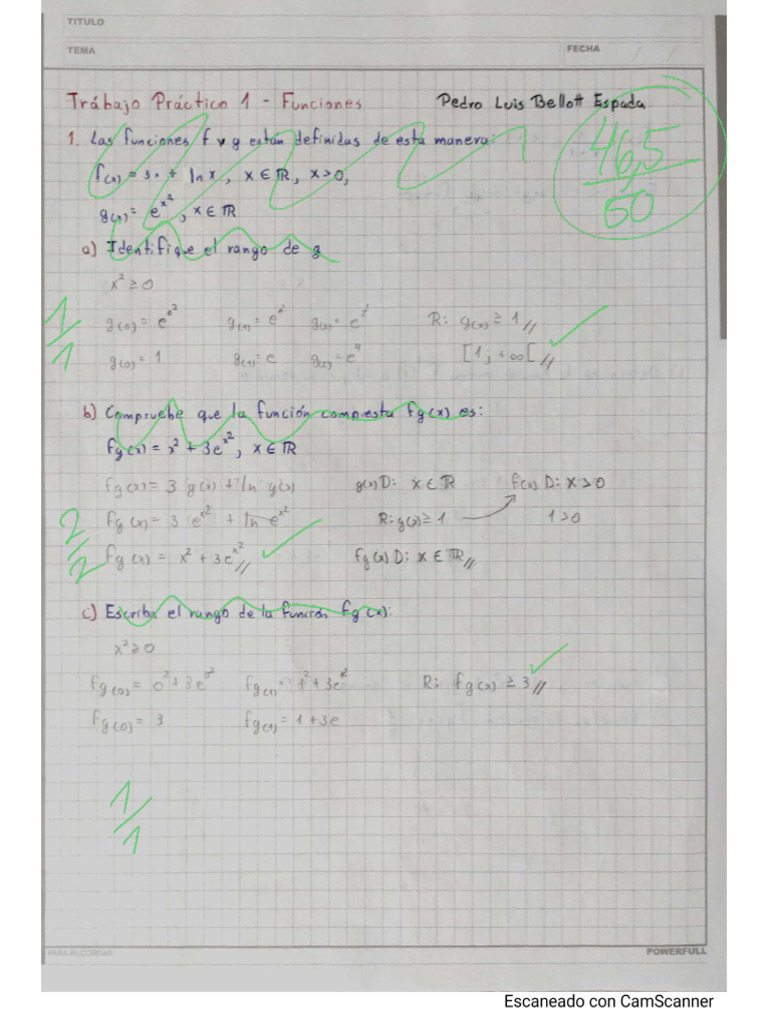 TITULO
TEMA
FECHA / /
Trabajo Práctico 1 - Funciones Pedro Luis Bellott Espada
46,5/50
1. Las funciones f y g están definidas de esta manera:
f(x) = 3x + ln x, x ∈ ℝ, x > 0,
g(x) = e^x², x ∈ ℝ
a) Identifique el rango de g
x² ≥ 0
1/1
g(0) = e^0² g(1) = e^1² g(2) = e^2² R: g(x) ≥ 1//
g(0) = 1 g(1) = e g(2) = e^4 [1; +∞[//
b) Compruebe que la función compuesta fg(x) es:
fg(x) = x² + 3e^x², x ∈ ℝ
fg(x) = 3 g(x) + ln g(x) g(x) D: x ∈ ℝ f(x) D: x > 0
2/2
fg(x) = 3 e^x² + ln e^x² R: g(x) ≥ 1 1 > 0
fg(x) = x² + 3e^x²// fg(x) D: x ∈ ℝ//
c) Escriba el rango de la función fg(x):
x² ≥ 0
fg(0) = 0² + 3e^0² fg(1) = 1² + 3e^1² R: fg(x) ≥ 3//
fg(0) = 3 fg(1) = 1 + 3e
1/1
PARA RECORDAR
POWERFULL
Escaneado con CamScanner